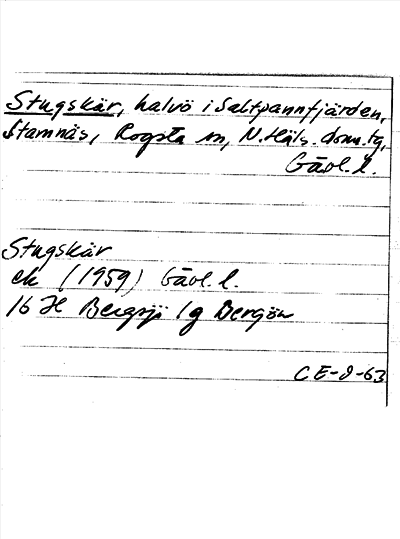 Stugskär, halvö i Saltpannfjärden,
Stamnäs, Rogsta sn, N. Häls. doms.tg,
Gävl. l.
Stugskär
ek (1959) Gävl. l.
16 H Bergsjö 1g Bergön
CE-8-63